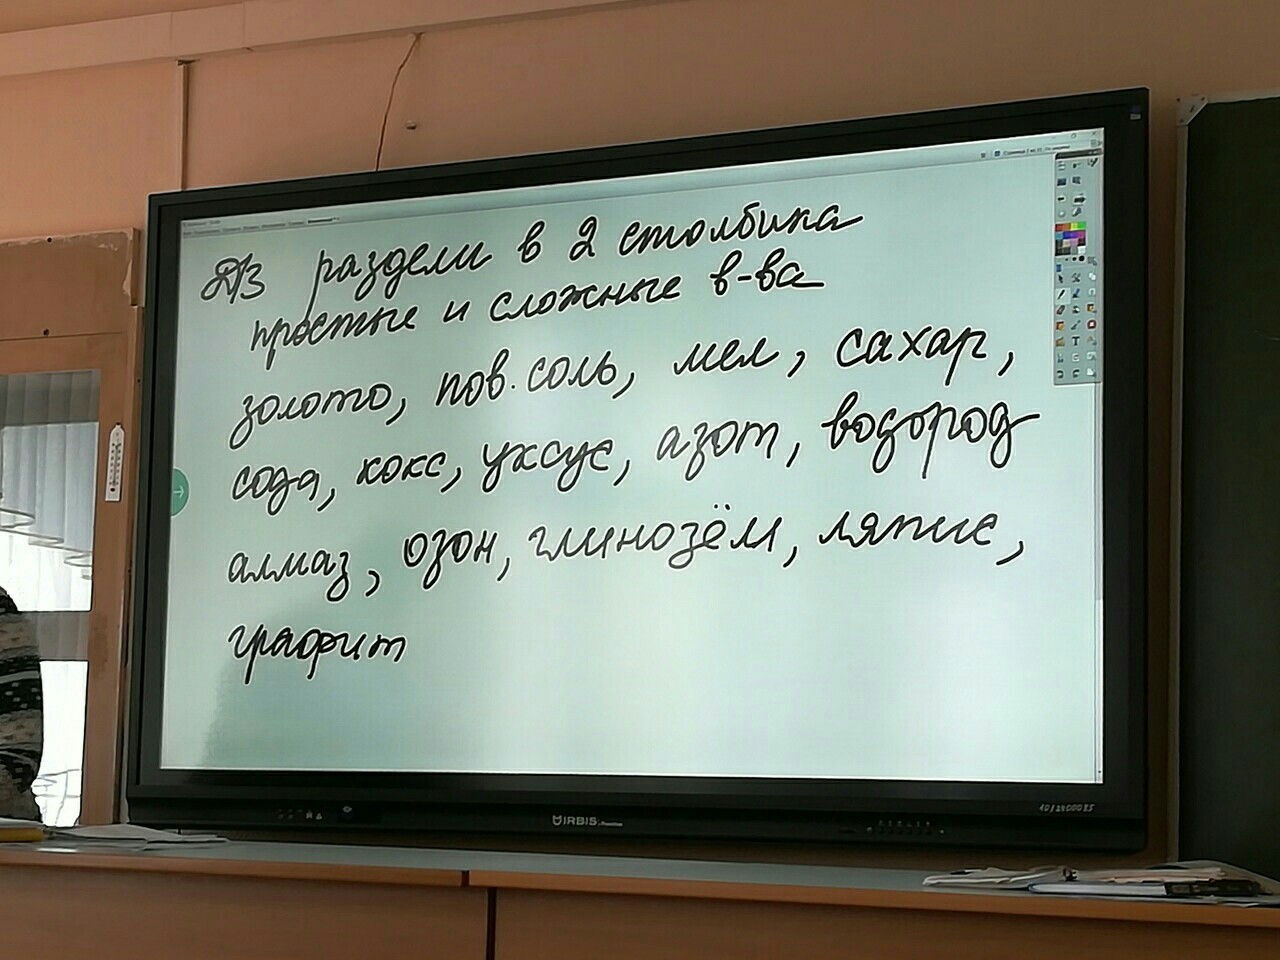 Д/З раздели в 2 столбика
простые и сложные в-ва
золото, пов. соль, мел, сахар,
сода, кокс, уксус, азот, водород
алмаз, озон, глинозём, ляпис,
графит
IRBIS